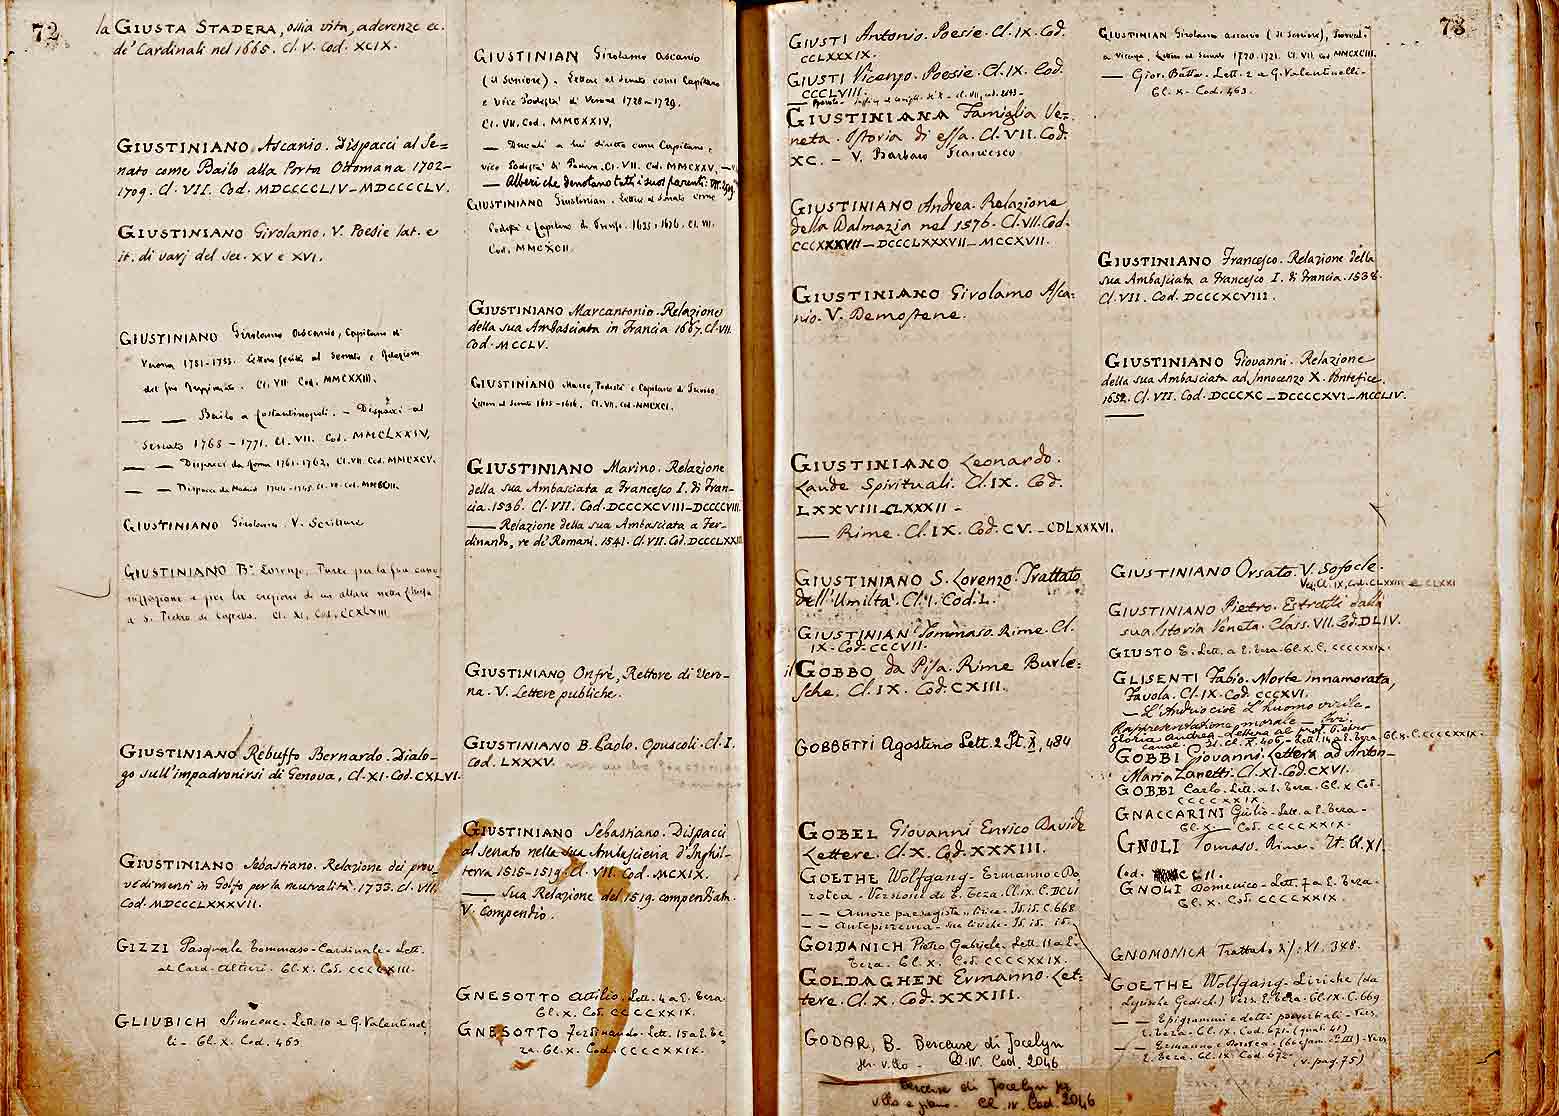 72
la GIUSTA STADERA, ossia vita, aderenze ec.
de' Cardinali nel 1665. Cl. V. Cod. XCIX.
GIUSTINIANO, Ascanio. Dispacci al Se=
nato come Bailo alla Porta Ottomana 1702-
1709. Cl. VII. Cod. MDCCCCLIV-MDCCCCLV.
GIUSTINIANO Girolamo. V. Poesie lat. e
it. di varj del sec. XV e XVI.
GIUSTINIANO Girolamo Ascanio, Capitano di
Verona 1731-1733. Lettere scritte al Senato e Relazione
del suo Reggimento. Cl. VII. Cod. MMCXXIII.
— — Bailo a Costantinopoli. - Dispacci al
Senato 1768-1771. Cl. VII. Cod. MMCLXXIV.
— — Dispacci da Roma 1761-1762. Cl. VII. Cod.
— — Dispacci da Madrid Cl. VII. Cod.
GIUSTINIANO Girolamo. V. Scritture
GIUSTINIANO B. Lorenzo. per la sua cano
nizzazione e per la erezione di un altare nella Chiesa
a S. Pietro di Castello. Cl. XI. Cod. CCXLVIII.
GIUSTINIANO Rebuffo Bernardo. Dialo-
go sull'impadronirsi di Genova. Cl. XI. Cod. CXLVI.
GIUSTINIANO Sebastiano. Relazione dei prov-
vedimenti in Golfo per la neutralità. 1733. Cl. VII.
Cod. MDCCCLXXXVII.
GIZZI Pasquale Tommaso - Cardinale - Lett.
al Card. Altieri. Cl. X. Cod. CCCCXIII.
GLIUBICH Simeone. Lett. 10 a G. Valentinel
li - Cl. X. Cod. 463
GIUSTINIAN Girolamo Ascanio
(il Seniore). Lettere al Senato come Capitano
e Vice Podestà di Verona 1728-1729.
Cl. VII. Cod. MMCXXIV.
— Ducali a lui dirette come Capitano e
vice Podestà di Padova. Cl. VII. Cod. MMCXXV.
— Alberi che denotano tutti i suoi parenti. VII.
GIUSTINIANO Giustinian. Lettere al Senato come
Podestà e Capitano di Treviso. 1635-1636. Cl. VII.
Cod. MMCXCII.
GIUSTINIANO Marcantonio. Relazione
della sua Ambasciata in Francia 1667. Cl. VII.
Cod. MCCLV.
GIUSTINIANO Marco, Podestà e Capitano di Treviso
Lettere al Senato 1615-1616. Cl. VII. Cod. MMCXCI.
GIUSTINIANO Marino. Relazione
della sua Ambasciata a Francesco I. di Fran-
cia. 1536. Cl. VII. Cod. DCCCXCVIII-DCCCCVIII.
— Relazione della sua Ambasciata a Fer-
dinando, re de' Romani. 1541. Cl. VII. Cod. DCCCLXXIII
GIUSTINIANO, Onfrè, Rettore di Vero-
na. V. Lettere publiche.
GIUSTINIANO B. Paolo. Opuscoli. Cl. I.
Cod. LXXXV.
GIUSTINIANO Sebastiano. Dispacci
al Senato nella sua Ambascieria d'Inghil-
terra 1515-1519. Cl. VII. Cod. MCXIX.
— Sua Relazione del 1519. compendiata.
V. Compendio.
GNESOTTO Attilio. Lett. 4 a E. Teza.
Cl. X. Cod. CCCCXXIX.
GNESOTTO Ferdinando. Lett. 15 a E. Te
za. Cl. X. Cod. CCCCXXIX.
GIUSTI Antonio. Poesie. Cl. IX. Cod.
CCLXXXIX.
GIUSTI Vicenzo. Poesie. Cl. IX. Cod.
CCCLVIII.
GIUSTINIANA Famiglia Ve=
neta. Istoria di essa. Cl. VII. Cod.
XC. - V. Barbaro Francesco
GIUSTINIANO Andrea. Relazione
della Dalmazia nel 1576. Cl. VII. Cod.
CCCXXXVII-DCCCLXXXVII-MCCXVII.
GIUSTINIANO Girolamo Asca-
nio. V. Demostene.
GIUSTINIANO Leonardo.
Laude Spirituali. Cl. IX. Cod.
LXXVIII-CLXXXII -
— Rime. Cl. IX. Cod. CV. - CDLXXXVI.
GIUSTINIANO S. Lorenzo. Trattato
dell'Umiltà. Cl. I. Cod. L.
GIUSTINIAN Tommaso. Rime. Cl.
IX. Cod. CCCVII.
il GOBBO da Pisa. Rime Burle=
sche. Cl. IX. Cod. CXIII.
GOBBETTI Agostino Lett. 2 It. X, 484
GOBEL Giovanni Enrico Davide
Lettere. Cl. X. Cod. XXXIII.
GOETHE Wolfgang - Ermanno e Do
rotea - Versione di E. Teza. Cl. IX. C. DCLI
— — Amore paesagista - It. IX. C. 668
— — Anteprimema - - It. IX.
GOIDANICH Pietro Gabriele. Lett. 11 a E.
Teza. Cl. X. Cod. CCCCXXIX.
GOLDAGHEN Ermanno. Let-
tere. Cl. X. Cod. XXXIII.
GODAR, B. Berceuse di Jocelyn
Cl. IV. Cod. 2046
Berceuse di Jocelyn per
v.llo e piano. Cl. IV. Cod. 2046
73
GIUSTINIAN Girolamo Ascanio (il Seniore),
a Vicenza. Lettere al Senato 1720-1721. Cl. VII. Cod. MMCXCIII.
— Gior. Batta. Lett. 2 a G. Valentinelli -
Cl. X. Cod. 463.
GIUSTINIANO Francesco. Relazione della
sua Ambasciata a Francesco I. di Francia. 1538.
Cl. VII. Cod. DCCCXCVIII.
GIUSTINIANO Giovanni. Relazione
della sua Ambasciata ad Innocenzo X. Pontefice.
1652. Cl. VII. Cod. DCCCXC-DCCCCXVI-MCCLIV.
GIUSTINIANO Orsato. V. Sofocle.
V. Cl. IX, Cod. CLXXIII e CLXXI
GIUSTINIANO Pietro. Estratti dalla
sua Istoria Veneta. Class. VII. Cod. DLIV.
GIUSTO E. Lett. a E. Teza. Cl. X. C. CCCCXXIX.
GLISENTI Fabio. Morte innamorata,
Favola. Cl. IX. Cod. CCCXVI.
— L'Andrio cioè L'huomo virile.
Rappresentazione morale - Ivi.
GLORIA Andrea - Lettera al prof. Pietro
Canal. It. Cl. X. 406 - Lett. 14 a E. Teza. Cl. X. C. CCCCXXIX.
GOBBI Giovanni. Lettera ad Anton-
Maria Zanetti. Cl. XI. Cod. CXVI.
GOBBI Carlo. Lett. a E. Teza. Cl. X. Cod.
CCCCXXIX.
GNACCARINI Giulio - Lett. a E. Teza -
Cl. X. Cod. CCCCXXIX.
GNOLI Tomaso. Rime. It. Cl. XI.
Cod. CCII.
GNOLI Domenico - Lett. 7 a E. Teza.
Cl. X. Cod. CCCCXXIX.
GNOMONICA Trattato XI. 348.
GOETHE Wolfgang - Liriche (da
Lyrische Gedich.) Vers. E. Teza. Cl. IX. C. 669
— — Epigrammi e detti proverbiali - Vers.
E. Teza. Cl. IX. Cod. 671.
— — Ermanno e Dorotea - Vers
E. Teza. Cl. IX. Cod. 672 (v. pag. 75)